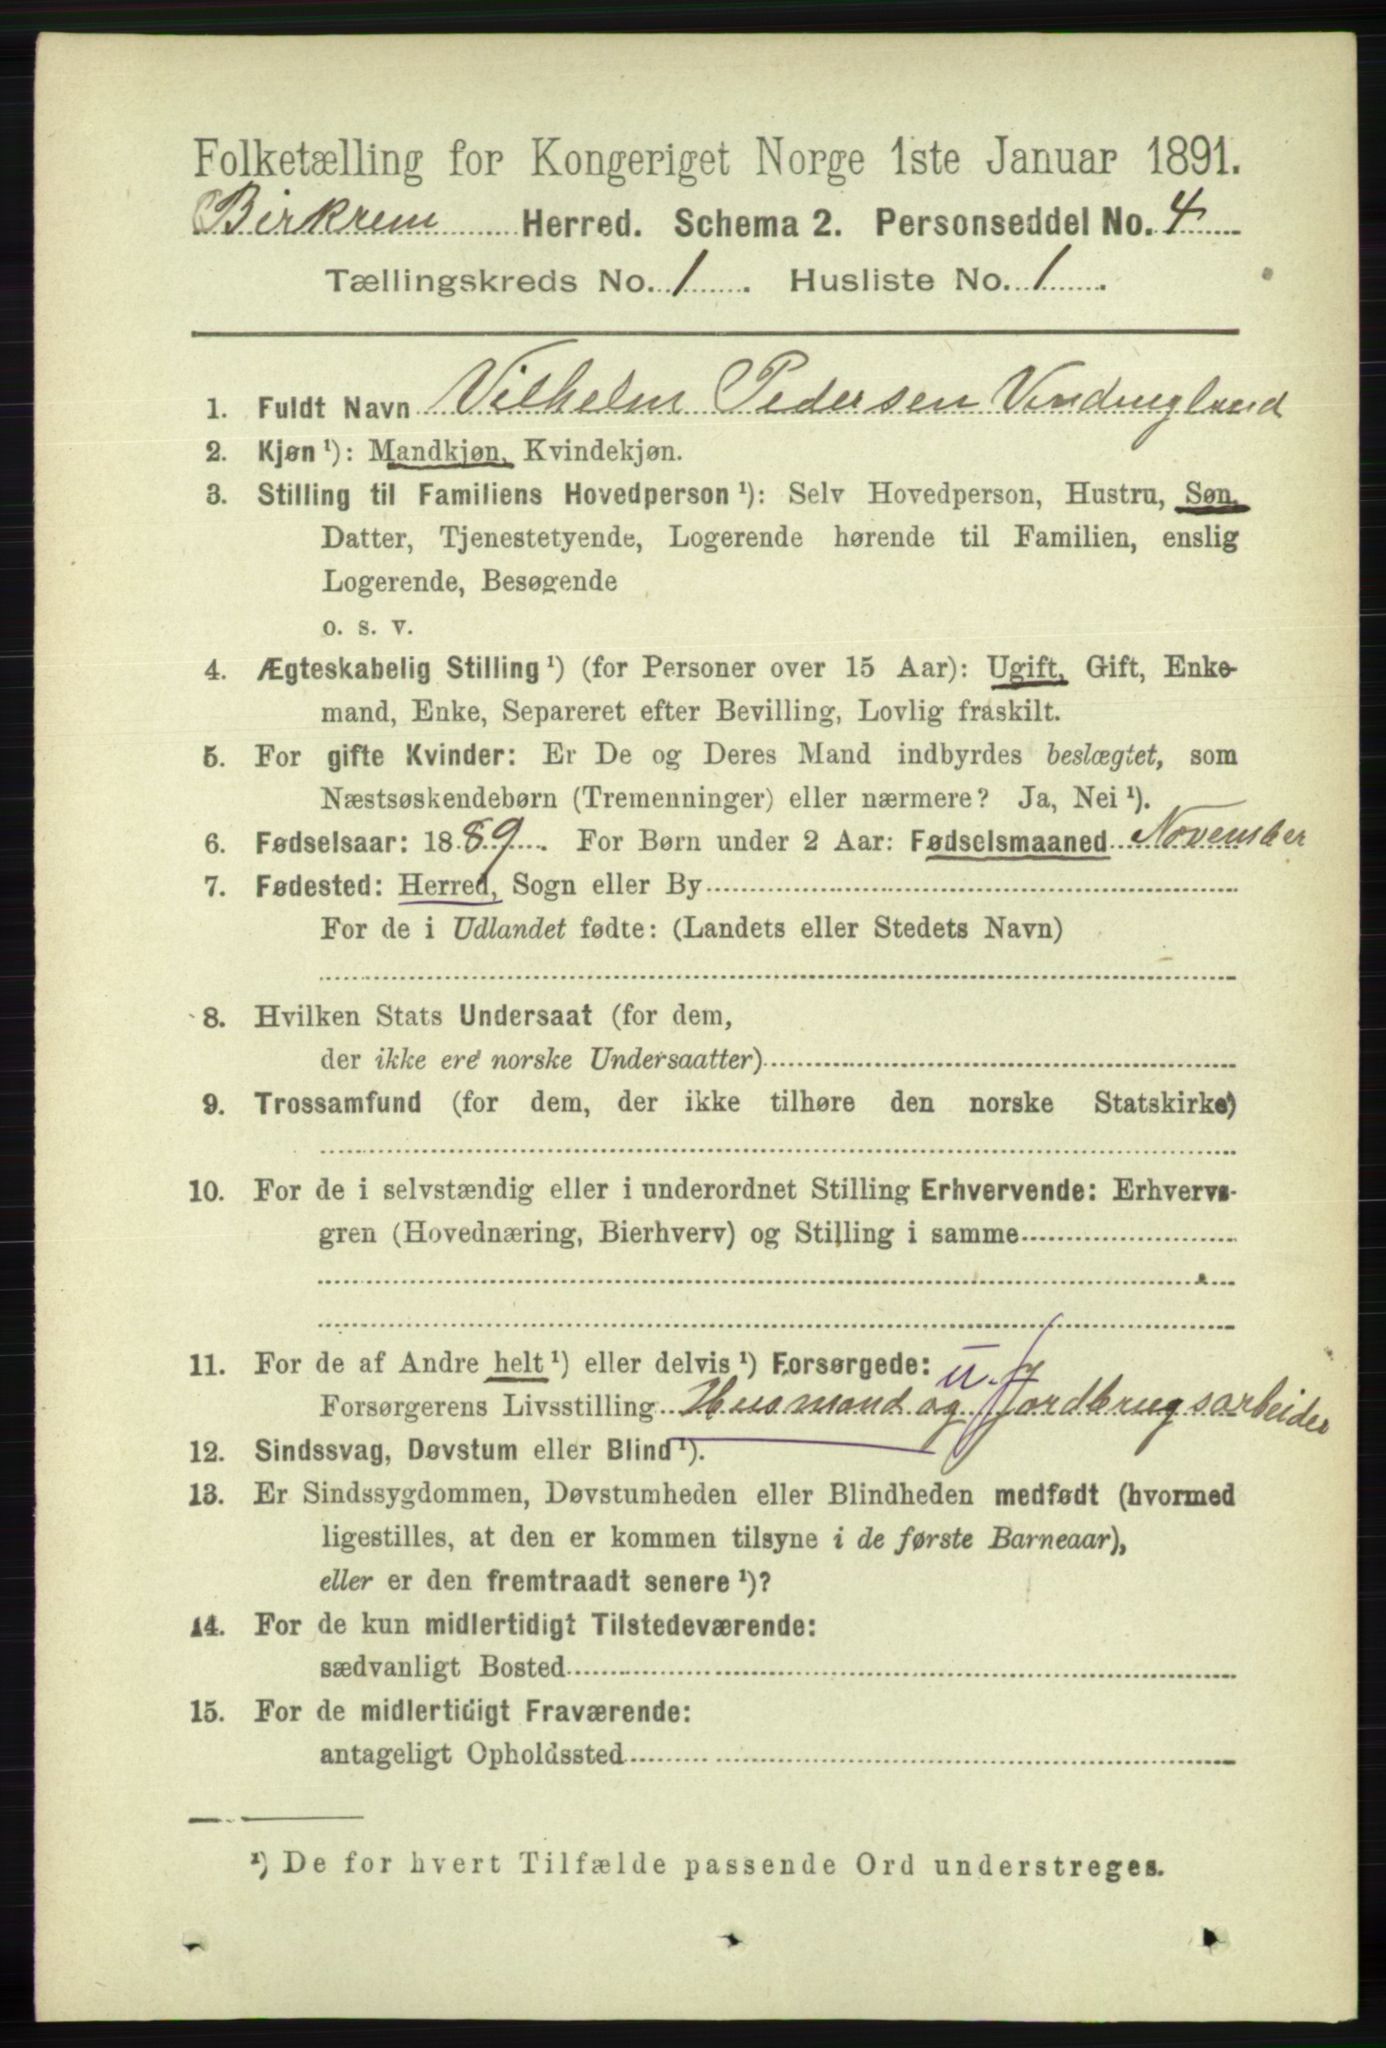 Folketælling for Kongeriget Norge 1ste Januar 1891.
Birkrem Herred. Schema 2. Personseddel No. 4
Tællingskreds No. 1. Husliste No. 1.
1. Fuldt Navn Vilhelm Pedersen
2. Kjøn ¹): Mandkjøn, Kvindekjøn.
3. Stilling til Familiens Hovedperson ¹): Selv Hovedperson, Hustru, Søn,
Datter, Tjenestetyende, Logerende hørende til Familien, enslig
Logerende, Besøgende
o. s. v.
4. Ægteskabelig Stilling ¹) (for Personer over 15 Aar): Ugift, Gift, Enke-
mand, Enke, Separeret efter Bevilling, Lovlig fraskilt.
5. For gifte Kvinder: Er De og Deres Mand indbyrdes beslægtet, som
Næstsøskendebørn (Tremenninger) eller nærmere? Ja, Nei ¹).
6. Fødselsaar: 1889. For Børn under 2 Aar: Fødselsmaaned November
7. Fødested: Herred, Sogn eller By
For de i Udlandet fødte: (Landets eller Stedets Navn)
8. Hvilken Stats Undersaat (for dem,
der ikke ere norske Undersaatter)
9. Trossamfund (for dem, der ikke tilhøre den norske Statskirke)
10. For de i selvstændig eller i underordnet Stilling Erhvervende: Erhvervs-
gren (Hovednæring, Bierhverv) og Stilling i samme
11. For de af Andre helt ¹) eller delvis ¹) Forsørgede:
Forsørgerens Livsstilling Husmand og Jordbrugsarbeider
12. Sindssvag, Døvstum eller Blind ¹).
13. Er Sindssygdommen, Døvstumheden eller Blindheden medfødt (hvormed
ligestilles, at den er kommen tilsyne i de første Barneaar),
eller er den fremtraadt senere ¹)?
14. For de kun midlertidigt Tilstedeværende:
sædvanligt Bosted
15. For de midlertidigt Fraværende:
antageligt Opholdssted
¹) De for hvert Tilfælde passende Ord understreges.